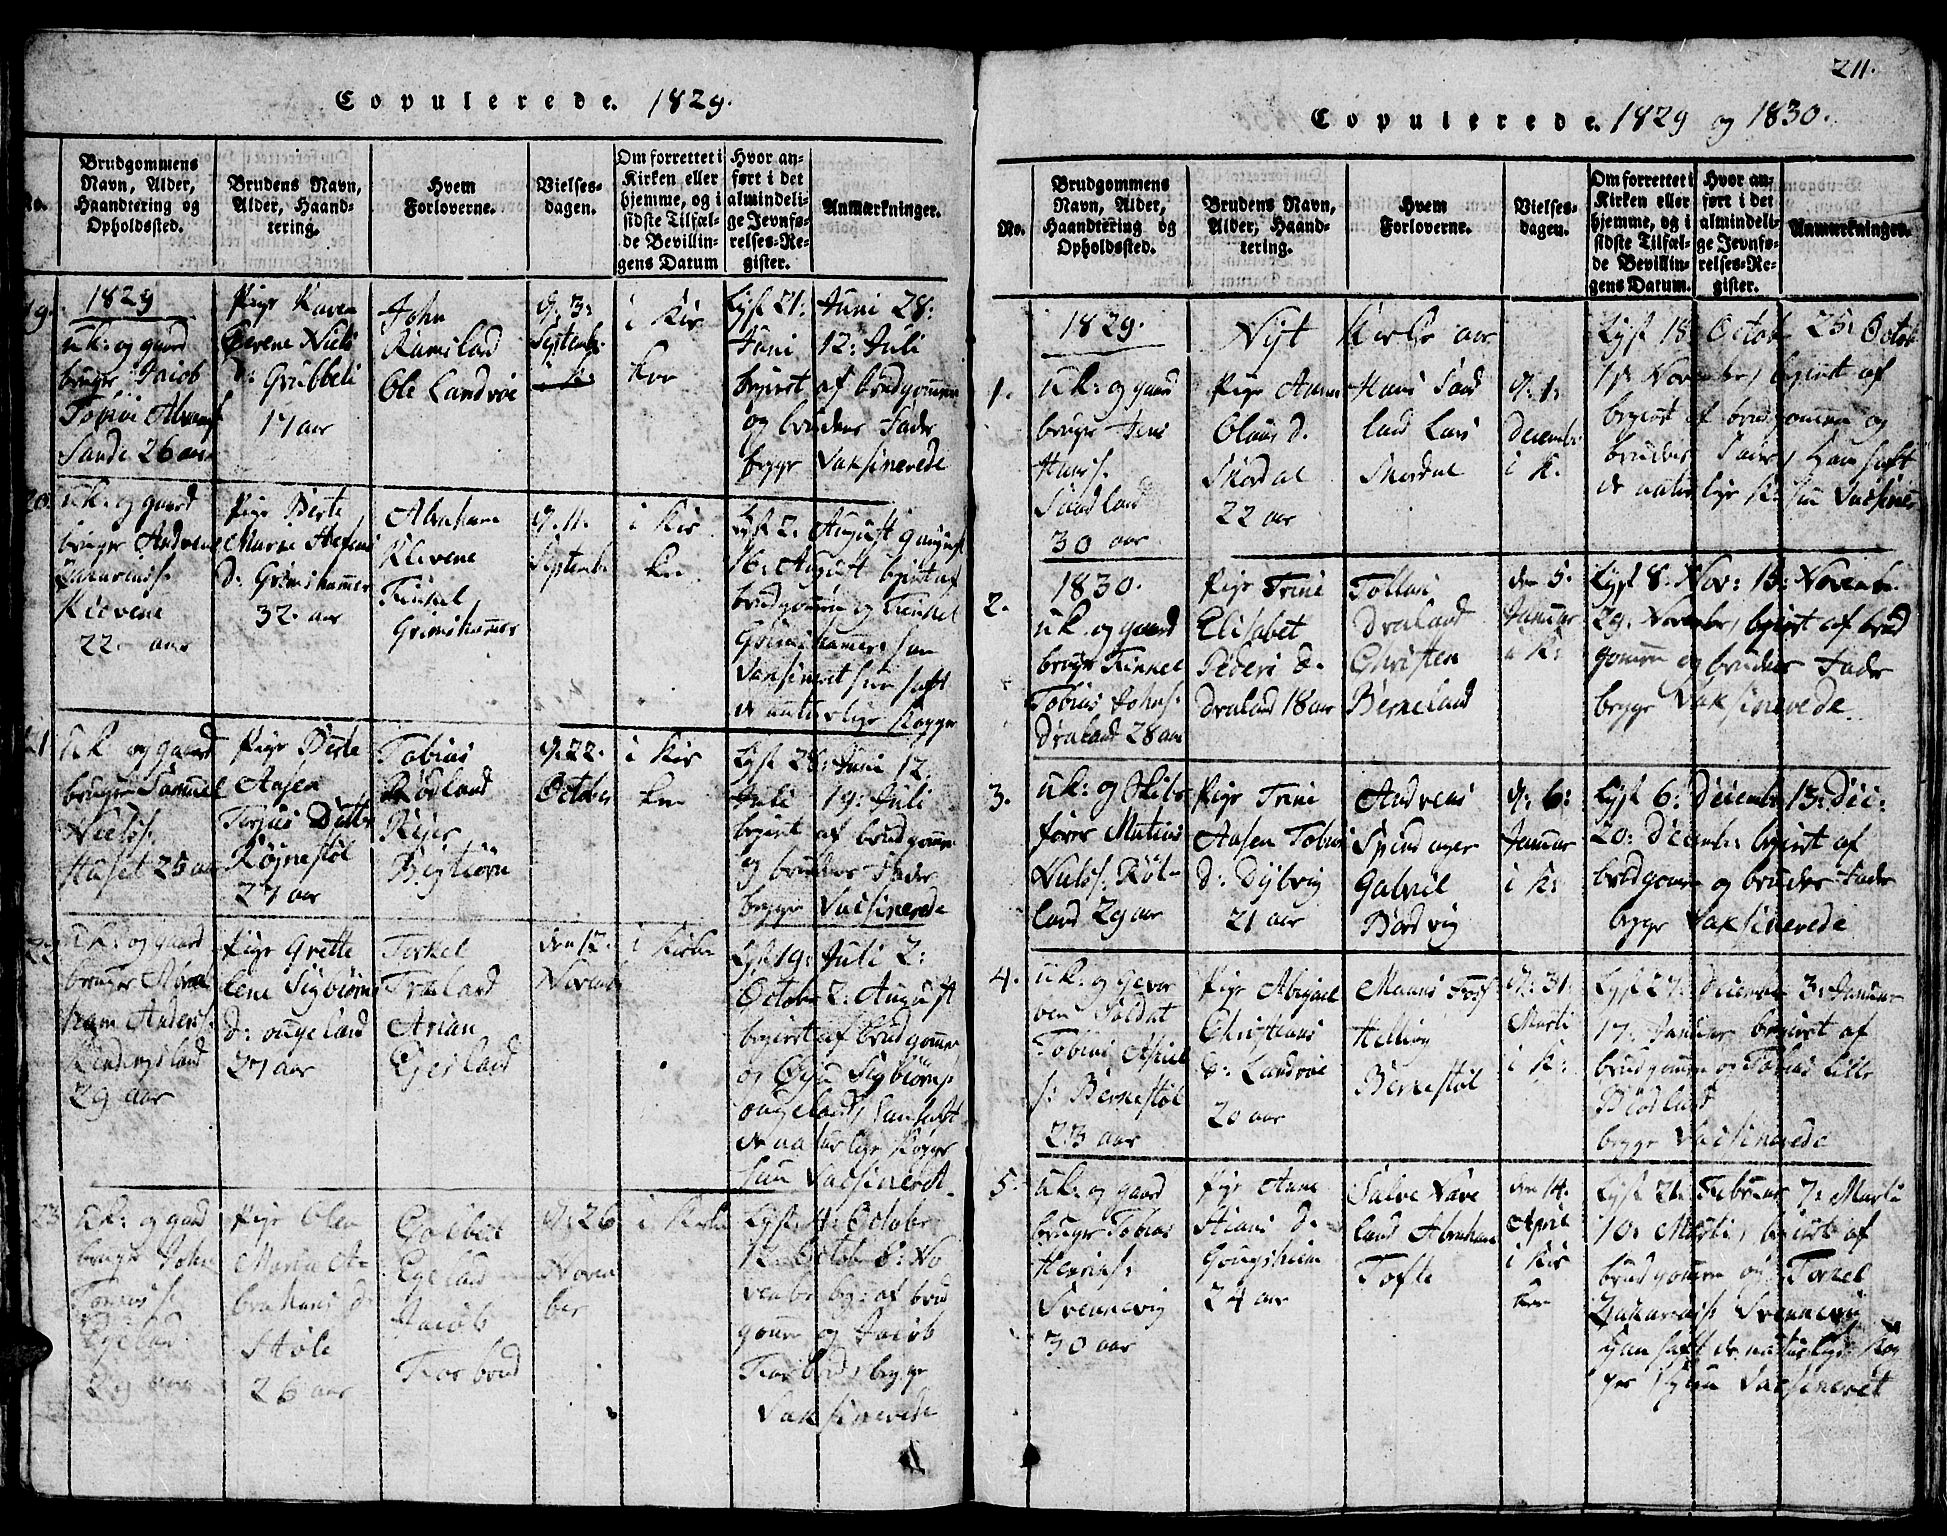 Copulerede. 1829.
No.
Brudgommens
Navn, Alder,
Haandtering og
Opholdssted.
Brudens Navn,
Alder, Haand-
tering.
Hvem
Forloverne.
Vielses-
dagen.
Om forrettet i
Kirken eller
hjemme, og i
sidste Tilfæl-
de Bevillin-
gens Datum
Hvor an-
ført i det
almindeli-
ge Jevnfø-
relses-Re-
gister.
Anmærkninger.
19.
1829
uk: og gaard
bruger Jacob
Sande 26 aar
Pige Karen
Serene Niels
d: Grubbeli
17 aar
John
Ramsland
Ole Landvoe
d: 3:
Septemb:
i Kir
ken
Lyst 21: Juni 28:
Juni 12: Juli
begiert af brudgommen
og brudens Fader
begge Vaksinerede
20.
uk: og gaard
bruger Andreas
Klevene
22 aar
Pige Berte
Marne Stefens
d: Grimshammer
32 aar
Abraham
Klevene
Tinkel
Grimshammer
d. 11.
Septemb:
i Kir
ken
Lyst 2: August 9 august
16: August begiert af
brudgommen og Tinkel
Grimshammer han
Vaksineret hun haft
de naturlige Kopper
21
uk og gaard
bruger Samuel
Niels s:
Haset 25 aar
Pige Berte
Aasen
Terjus Datter
Røjnestøl
27 aar
Tobias
Rødland
Rejer
Bigtiørn
d. 22.
October
i Kir
ken
Lyst 28: Juni 12:
Juli 19: Juli
begiert af brudgommen
og brudens Fader
begge Vacsinerede
22
uk: og gaard
bruger Abra
ham Anders s:
29 aar
Pige Grette
Lene Sigbiørns
d: ougeland
27 aar
Terkel
Træland
Arian
Egeland
den 12.
Novemb
i Kirken
Lyst 19: Juli 2:
October 2: August
begiert af brudgommen
og Sigbiørn s:
ougeland, han haft
de naturlige Kopper
hun Vacsineret.
23
uk: og gaard
bruger John
Egeland
29 aar
Pige Olen
Maria A-
brahams d:
Støle
26 aar
Egeland
Jacob
Forbrud
d: 26
Novem
ber
i Kirken
Lyst 4: October
12 October 8: No
vember beg: af brud
gomen og Jacob
Forbrud, begge
Vaksinerede
211.
Copulerede. 1829 og 1830.
No.
Brudgommens
Navn, Alder,
Haandtering og
Opholdssted.
Brudens Navn,
Alder, Haand-
tering.
Hvem
Forloverne.
Vielses-
dagen.
Om forrettet i
Kirken eller
hjemme, og i
sidste Tilfæl-
de Bevillin-
gens Datum.
Hvor an-
ført i det
almindeli-
ge Jevnfø-
relses-Re-
gister.
Anmærkninger.
1829. Nyt Kirke aar
1.
uk: og gaard
bruger Jens
Hans s:
Sandland
30 aar
Pige Anne
Olaus d.
Skordal
22 aar
Hans Sand
land Lars
Skordal
d: 1:
Decemb:
i K.
Lyst 18 Octob 25: Octob
1: November, begiert af
brudgommen og
brudens Fader, han haft
de naturlige K: hun Vacsiner
2.
1830.
uk. og gaard
bruger Tinkel
Tobias Johns s:
Draland 28 aar
Pige Trine
Elisabet
Peders d.
Draland 18 aar
Tollas
Draland
Christen
Berneland
den 5.
Januar
i K:
Lyst 8: Nov: 15: Novemb
29. November, begiert af brud
gommen og brudens Fader
begge Vaksinerede
3.
uk: og Skibs
fører Matias
Niels s: Røt-
land 29 aar
Pige Trine
Aasen Tobias
d: Dybvig
21 aar
Andreas
Spindager
Gabriel
Bordvig
d: 6:
Januar
i K:
Lyst 6: Decemb 13: Dec:
20: December begiert af
brudgommen og brudens Fader
begge Vaksinerede
4.
uk: og gevor
ben Soldat
Tobias
s: Bernestøl
23 aar
Pige Abigael
Christians
d: Landvoe
20 aar
Mauns
Bernestøl
d: 31.
Marti
i K:
Lyst 27: December 3: Januar
17: Januar begiert af
brudgommen og Tobias Lille
Rødland
begge Vacsinerede
5.
uk: og gaard
bruger Tobias
Henriks s:
Svennevig
30 aar
Pige Anne
Stians d.
24 aar
Salve Nave
land Abraham
Tofte
den 14.
April
i Kir
ken
Lyst 21. Februar 7: Marti
10: Marti, begiert af
brudgommen og Terkel
Zakarias s: Svennevig
han haft de naturlige Kop
per, hun Vacsineret